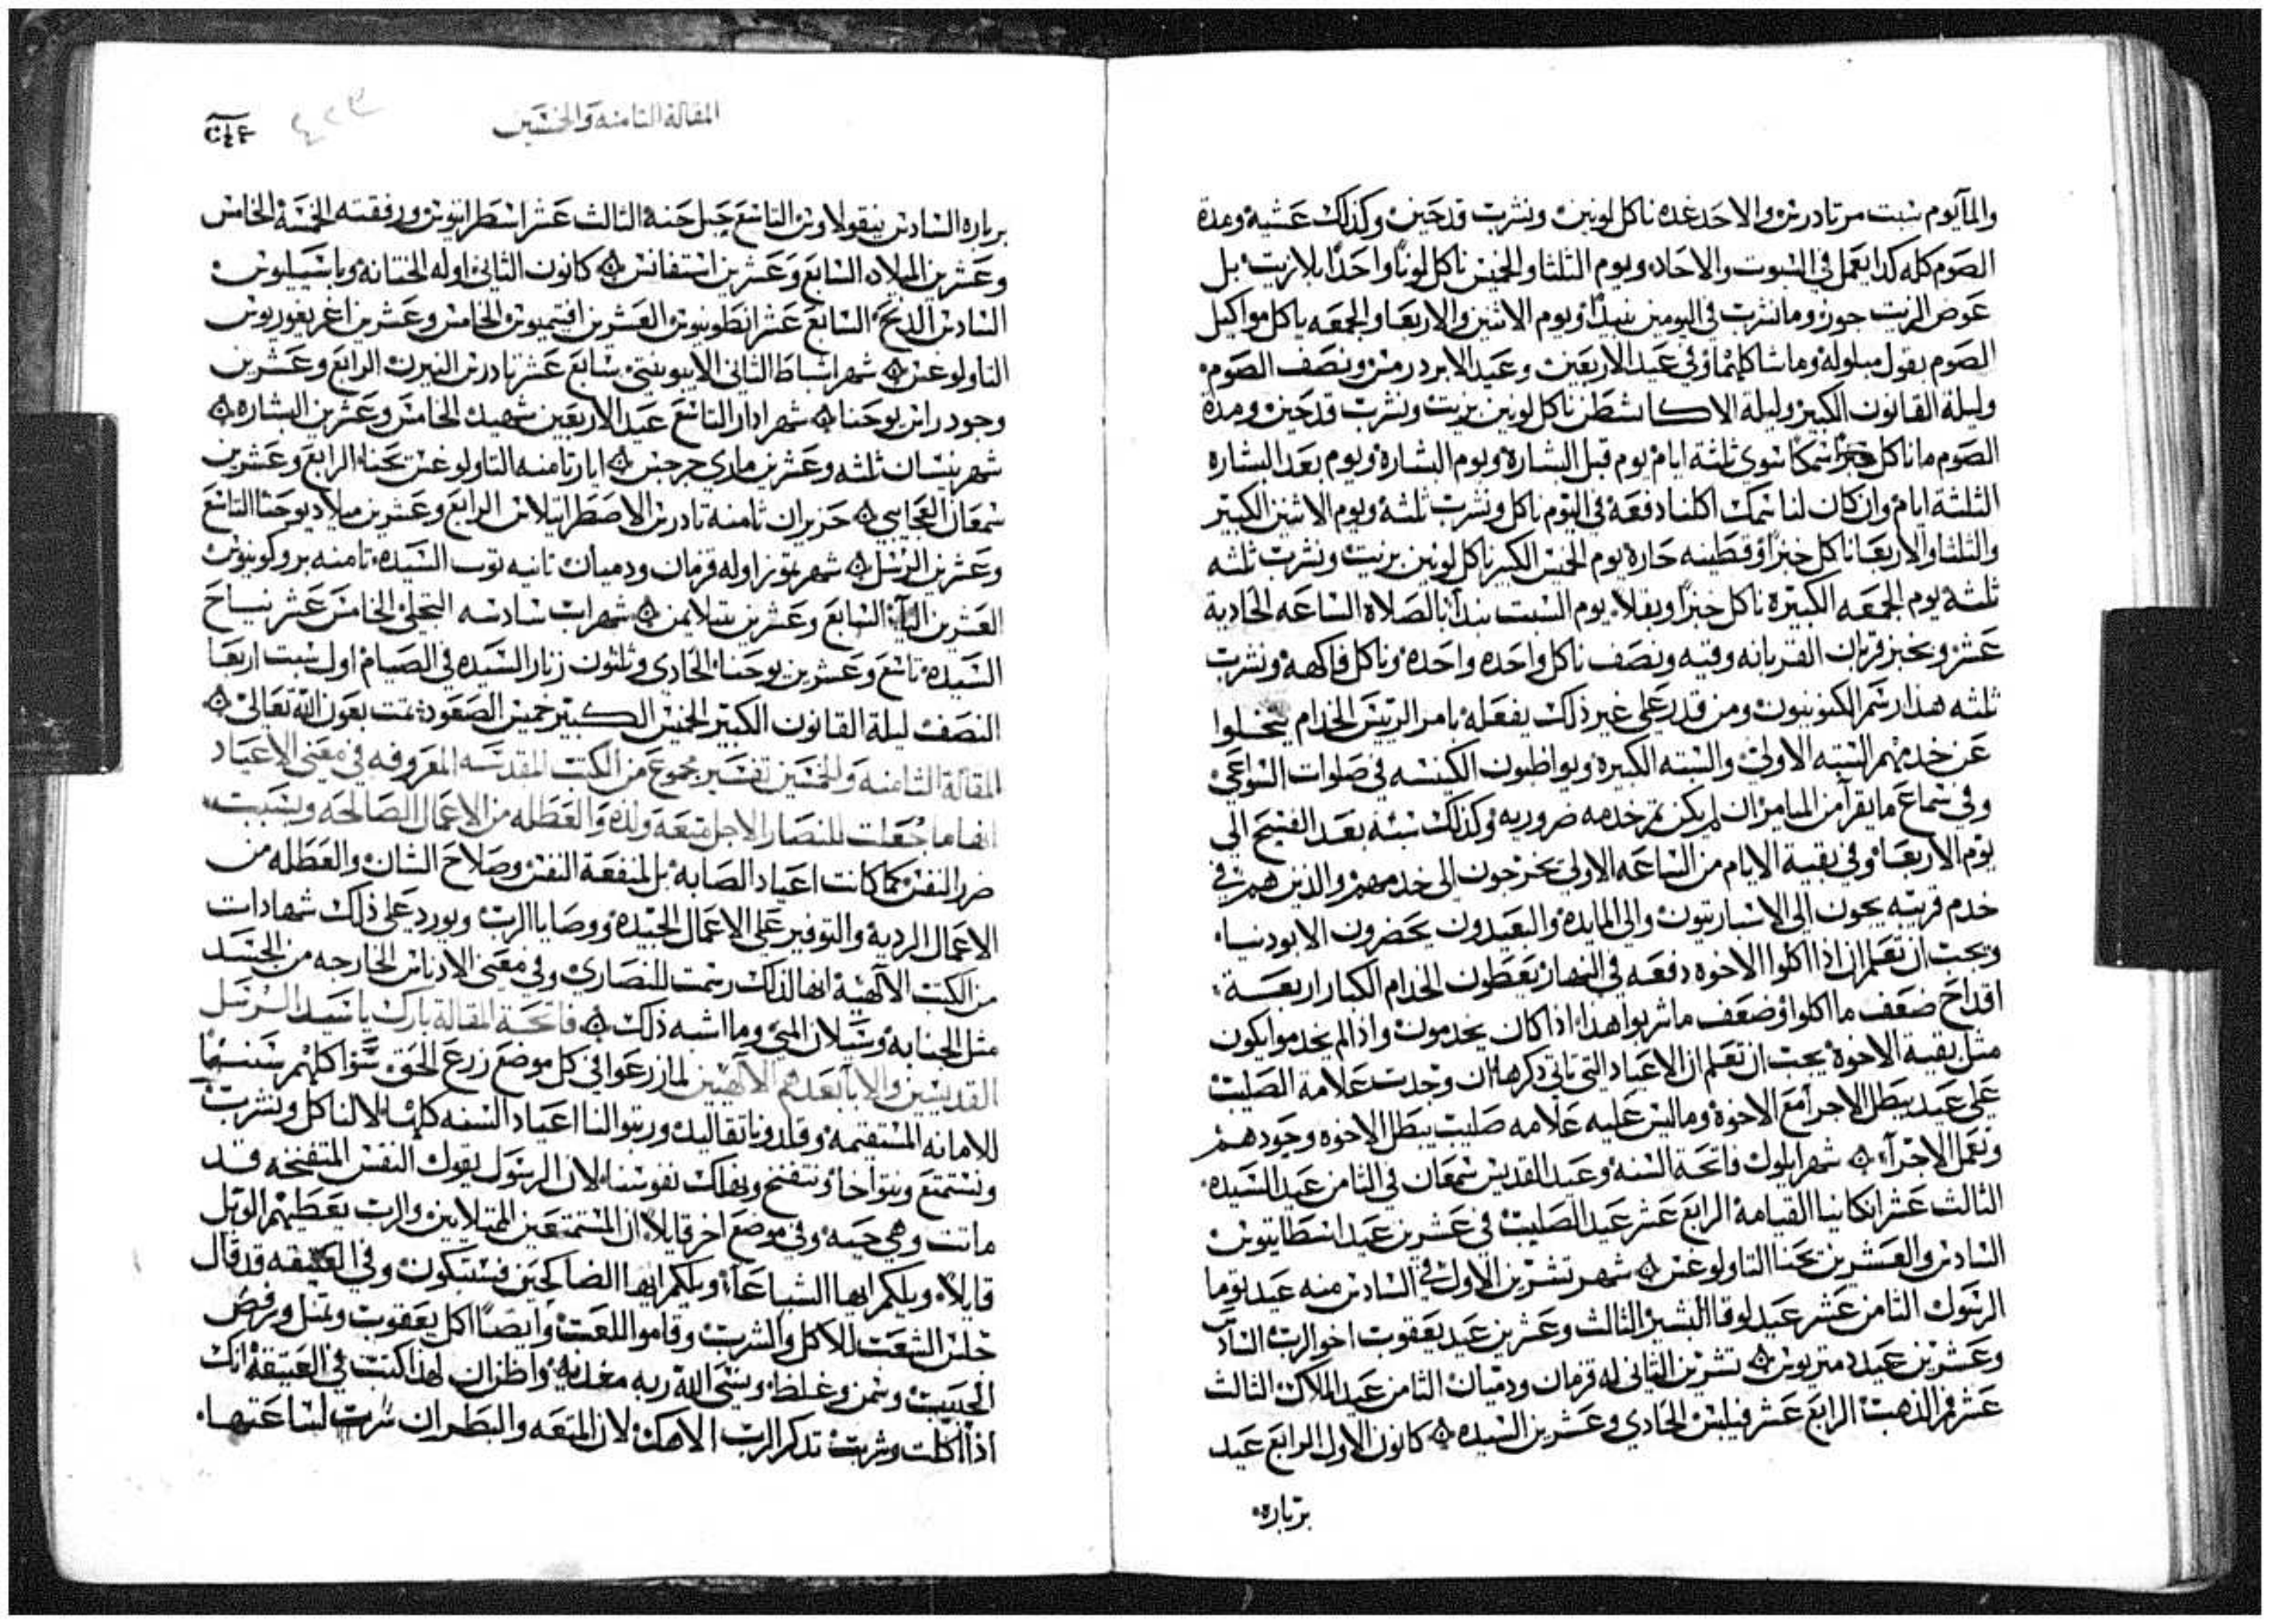 والمآ يوم سبت مرتادرس والاحد غده ناكل لونين ونشرب قدحين وكذلك عشية ومدة
الصوم كله كدا يعمل في السبوت والاحاد ويوم الثلثا والخميس ناكل لوناً واحداً بلا زيت بل
عوض الزيت جوز وما نشرب في اليومين نبيداً ويوم الاثنين والاربعا والجمعه ياكل مواكيل
الصوم بقول مبلوله وما شاكلهما وفي عيد الاربعين وعيد الابرد رمس ونصف الصوم
وليلة القانون الكبير وليلة الاكاشطس ناكل لونين بزيت ونشرب قدحين ومدة
الصوم ما ناكل سمكا سوى ثلثة ايام يوم قبل البشارة ويوم البشارة ويوم بعد البشاره
الثلثة ايام وان كان لنا سمك اكلنا دفعة في اليوم ناكل ونشرب ثلثة ويوم الاثنين الكبير
والثلثا والاربعا ناكل خبزاً وقطينه حارة يوم الخميس الكبير ناكل لونين بزيت ونشرب ثلثه
ثلثة يوم الجمعه الكبيرة ناكل خبزاً وبقلاً يوم السبت نبدأ بالصلاة الساعه الحادية
عشر وخبز قربان القربانه وفيه ونصف ناكل واحده واحده وناكل فاكهة ونشرب
ثلثه هذا رسم الكنونيون ومن قدر على غير ذلك يفعله بامر الريس الخدام يتخلوا
عن خدمهم السبته الاولى والسبته الكبيرة ويواظبون الكنيسه في صلوات السواعي
وفي سماع ما يقرآ من الميامر ان لم يكن ثم خدمه ضروريه وكذلك سبته بعد الفسح الى
يوم الاربعا وفي بقية الايام من الساعه الاولى يخرجون الى خدمهم والذين هم في
خدم قريبه يجون الى الاسبارتيون والى المايدة والبعيدون يحضرون الابودنيا
ويجب ان تعلم ان اذا اكلوا الاخوه دفعه في النهار يعطون الخدام الكبار اربعة
اقداح ضعف ما اكلوا وضعف ما شربوا هذا اذا كان يخدمون واذا لم يخدموا يكون
مثل بقية الاخوة يجب ان تعلم ان الاعياد التي تاتي ذكرها ان وجدت علامة الصليب
على عيد يبطل الاجرآ مع الاخوة وما ليس عليه علامه صليب يبطل الاخوه وجودهم
وتعمل الاجرآ شهر ايلول فاتحة السنه وعيد القديس سمعان في الثامن عيد السيده
الثالث عشر انكانيا القيامه الرابع عشر عيد الصليب في عشرين عيد اسطاتيوس
السادس والعشرين يحنا التاولوغس شهر تشرين الاول في السادس منه عيد توما
الرسول الثامن عشر عيد لوقا البشير الثالث وعشرين عيد يعقوب اخو الرب السادس
وعشرين عيد دمتريوس تشرين الثاني له قزمان ودميان الثامن عيد الملاك الثالث
عشر فم الذهب الرابع عشر فيلبس الحادي وعشرين السيده كانون الاول الرابع عيد
بربارة
المقالة الثامنه والخمسين
٢٤٤
بربارة السادس نيقولاوس التاسع حبل حنه الثالث عشر اسطراتيوس ورفقته الخمسة الخامس
وعشرين الميلاد السابع وعشرين استفانس كانون الثاني اوله الختانة وباسيليوس
السادس الدنح السابع عشر انطونيوس العشرين افتيميوس الخامس وعشرين اغريغوريوس
التاولوغس شهر اشباط الثاني الايبوبنتي سابع عشر تادرس التيرن الرابع وعشرين
وجود راس يوحنا شهر ادار التاسع عيد الاربعين شهيد الخامس وعشرين البشاره
شهر نيسان ثلثه وعشرين ماري جرجس ايار ثامنه التاولوغس يحنا الرابع وعشرين
سمعان العجايبي حزيران ثامنه تادرس الاصطراتيلاتس الرابع وعشرين ميلاد يوحنا التاسع
وعشرين الرسل شهر تموز اوله قزمان ودميان ثانيه ثوب السيده ثامنه بروكوبيوس
العشرين اليآ السابع وعشرين بنتلايمن شهر اب سادسه التجلي الخامس عشر نياح
السيده تاسع وعشرين يوحنا الحادي وثلثون زنار السيده في الصيام اول سبت اربعا
النصف ليلة القانون الكبير الخميس الكبير خميس الصعود تمت بعون الله تعالى
المقالة الثامنه والخمسين تفسير مجموع من الكتب المقدسه المعروفه في معنى الاعياد
انها ما جعلت للنصارا لاجل متعه ولذه والعطله من الاعمال الصالحه وبسبب
ضرر النفس كما كانت اعياد الصابه بل لمنفعة النفس وصلاح الشان والعطله من
الاعمال الرديه والتوفير على الاعمال الجيدة ووصايا الرب ويورد على ذلك شهادات
من الكتب الآلهية انها لذلك رسمت للنصارى وفي معنى الادناس الخارجه من الجسد
مثل الجنابة وسيلان المني وما اشبه ذلك فاتحة المقالة بارك يا سيد الرسل
القديسين والابآ بعدهم الآلهيين لما زرعوا في كل موضع زرع الحق سوا كلهم سننها
للامانه المستقيمه وقلدونا تقاليد ورتبوا لنا اعياد السنه كلها لا لناكل ونشرب
ونستمتع ونتواخا ونتفنخ ونهلك نفوسنا لان الرسول يقول النفس المتفنخه قد
ماتت وهي حيه وفي موضع اخر قايلاً ان المستمتعين الممتلايين والرب يعطيهم الويل
قايلاً ويلكم ايها الشباعآ ويلكم ايها الضاحكين فستبكون وفي العتيقه قد قال
جلس الشعب للاكل والشرب وقاموا للعب وايضاً اكل يعقوب وتمتل ورفض
الحبيب وسمن وغلظ ونسي الله ربه مغذيه واظن ان لهذا كتب في العتيقة انك
اذا اكلت وشربت تدكر الرب الاهك لان المتعه والبطر ان سرت لساعتها